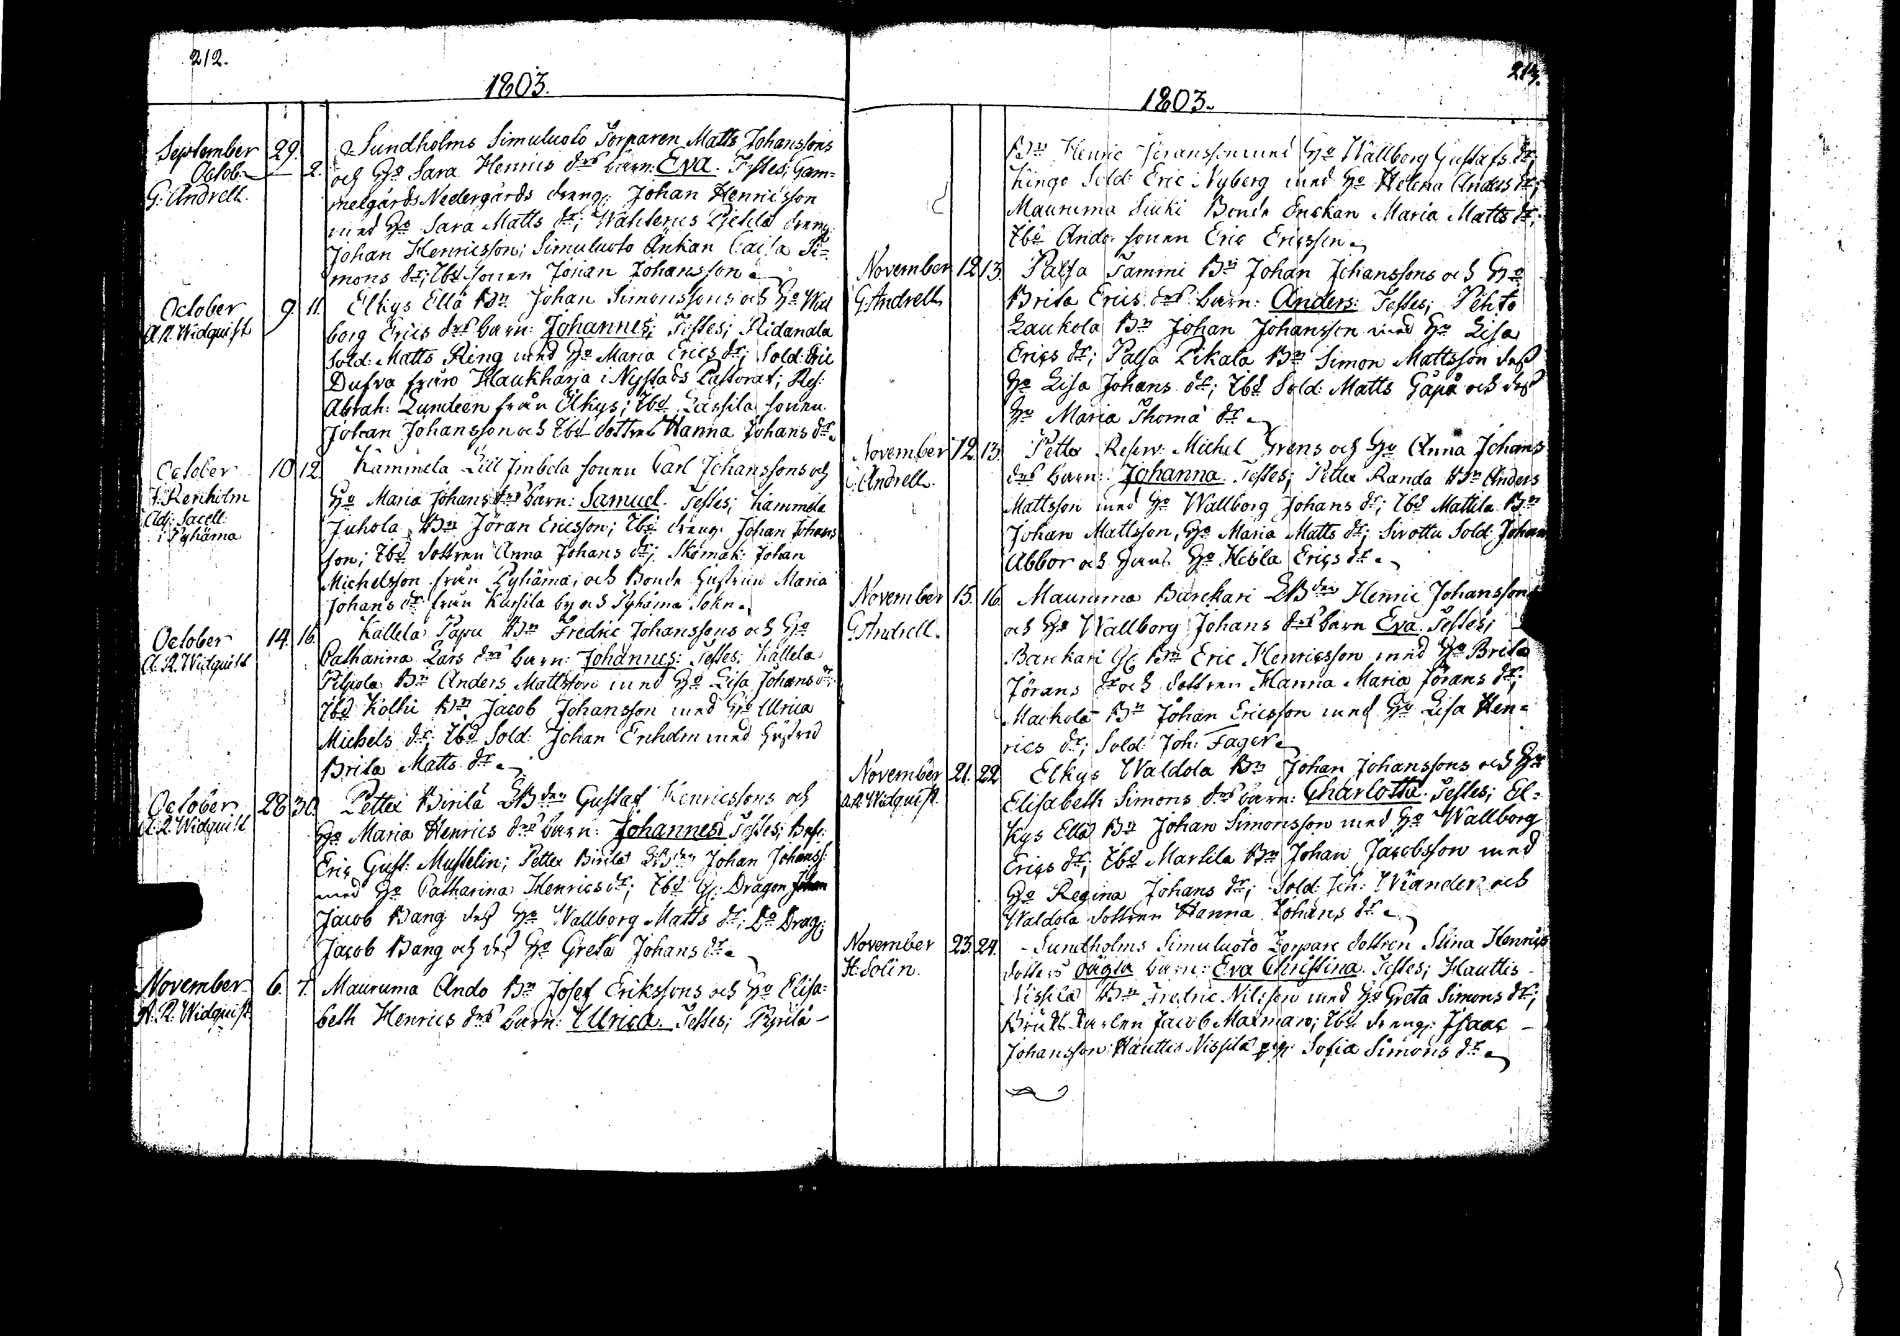 212.
1803.
September 29.
Octob. 2.
G. Andrell.
Sundholms Simuluoto Torparen Matts Johanssons
och H:o Sara Henrics d:rs barn: Eva. Testes; Gam=
melgårds Nedergårds dreng: Johan Henricsson
med H:o Sara Matts d:r; Wähteris dreng
Johan Henricsson; Simuluoto Änkan Caisa Si=
mons d:r; Ibd sonen Johan Johansson
October 9. 11.
A. R. Widquist
Elkys Ellä B:n Johan Simonssons och H:o Wal
borg Erics d:rs barn: Johannes; Testes; Ridanala
Sold: Matts Ring med H:o Maria Erics d:r; Sold: Eric
Dufva från Haukharja i Nystads Pastorat; Res:
Abrah: Lundeen från Elkys; Ibd Lassila sonen
Johan Johansson och Ibd dottren Hanna Johans d:r
October 10 12
J. Renholm
Adj: Sacell:
i Pyhäma
Kammela Lill Jmbola sonen Carl Johanssons och
H:o Maria Johans d:rs barn: Samuel. Testes; Kammela
Juhola B:n Jöran Ericson; Ibd dreng Johan Johans
son; Ibd dottren Anna Johans d:r; Skomak: Johan
Michelsson från Pyhäma; och Bonde Hustrun Maria
Johans d:r från Kursila by och Pyhäma Sokn
October 14. 16.
A. R. Widquist
Kallela Papu B:n Fredric Johanssons och H:o
Catharina Lars d:rs barn: Johannes: Testes: Kallela
Pilpola B:n Anders Mattsson med H:o Lisa Johans d:r;
Ibd Kolhi B:n Jacob Johansson med H:o Ulrica
Michels d:r; Ibd Sold: Johan Enholm med Hustrue
Brita Matts d:r
October 28 30.
A. R. Widquist
Petter Birilä Gustaf Henricssons och
H:o Maria Henrics d:rs barn: Johannes: Testes;
Eric Gust: Musselin; Petter Birilä Johan Johanss:
med H:o Catharina Henrics d:r; Ibd Dragon Johan
Jacob Bang dess H:o Wallborg Matts d:r; D:o Drag:
Jacob Bang och dess H:o Greta Johans d:r
November 6. 7.
A. R. Widquist
Mauruma Ando B:n Josef Erikssons och H:o Elisa=
beth Henrics d:rs barn: Ulrica. Testes; Pyrilä
213.
1803.
B:n Henric Jöransson med H:o Wallborg Gustafs d:r;
Hingo Sold: Eric Nyberg med H:o Helena Anders d:r;
Mauruma Bonde Enckan Maria Matts d:r;
Ibd Ando sonen Eric Ericsson
November 12 13.
G. Andrell
Palsa Tammi B:n Johan Johanssons och H:o
Brita Erics d:rs barn: Anders: Testes; Pehto
Laukola B:n Johan Johansson med H:o Lisa
Erics d:r; Palsa Pikala B:n Simon Mattsson dess
H:o Lisa Johans d:r; Ibd Sold: Matts Gäpä och dess
H:o Maria Thoma d:r
November 12. 13.
G. Andrell.
Petter Reserv: Michel Grens och H:o Anna Johans
d:rs barn: Johanna. Testes; Petter Randa B:n Anders
Mattsson med H:o Wallborg Johans d:r; Ibd Mattila B:n
Johan Mattsson, H:o Maria Matts d:r; Sirottu Sold: Johan
Abbor och hans H:o Hebla Erics d:r
November 15. 16.
G. Andrell.
Mauruma Barckari Henric Johansson
och H:o Wallborg Johans d:rs barn Eva. Testes;
Barckari B:n Eric Henricsson med H:o Brita
Jörans d:r och dottren Hanna Maria Jörans d:r;
Mackola B:n Johan Ericsson med H:o Lisa Hen=
rics d:r; Sold: Joh: Fager
November 21. 22
A. R. Widquist.
Elkys Waldola B:n Johan Johanssons och H:o
Elisabeth Simons d:rs barn: Charlotta. Testes; El=
kys Ellä B:n Johan Simonsson med H:o Wallborg
Erics d:r; Ibd Marttila B:n Johan Jacobsson med
H:o Regina Johans d:r; Sold: Joh: Wiander och
Waldola dottren Hanna Johans d:r
November 23. 24.
H. Solin.
Sundholms Simuluoto Torpare dottren Stina Henrics
dotters oägta barn: Eva Christina. Testes; Hauttis
Nissilä B:n Fredric Nilsson med H:o Greta Simons d:r;
Jacob Malmen; Ibd dreng: Isaac
Johansson: Hauttis Nissilä pig: Sofia Simons d:r